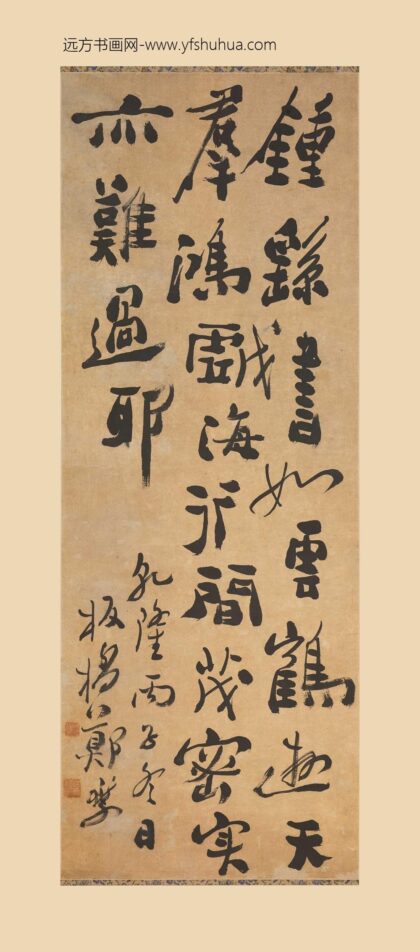 远方书画网-www.yfshuhua.com
鍾繇書如雲鶴遊天
羣鴻戲海行間茂密实
亦難過耶
乾隆丙子冬日
板橋鄭燮